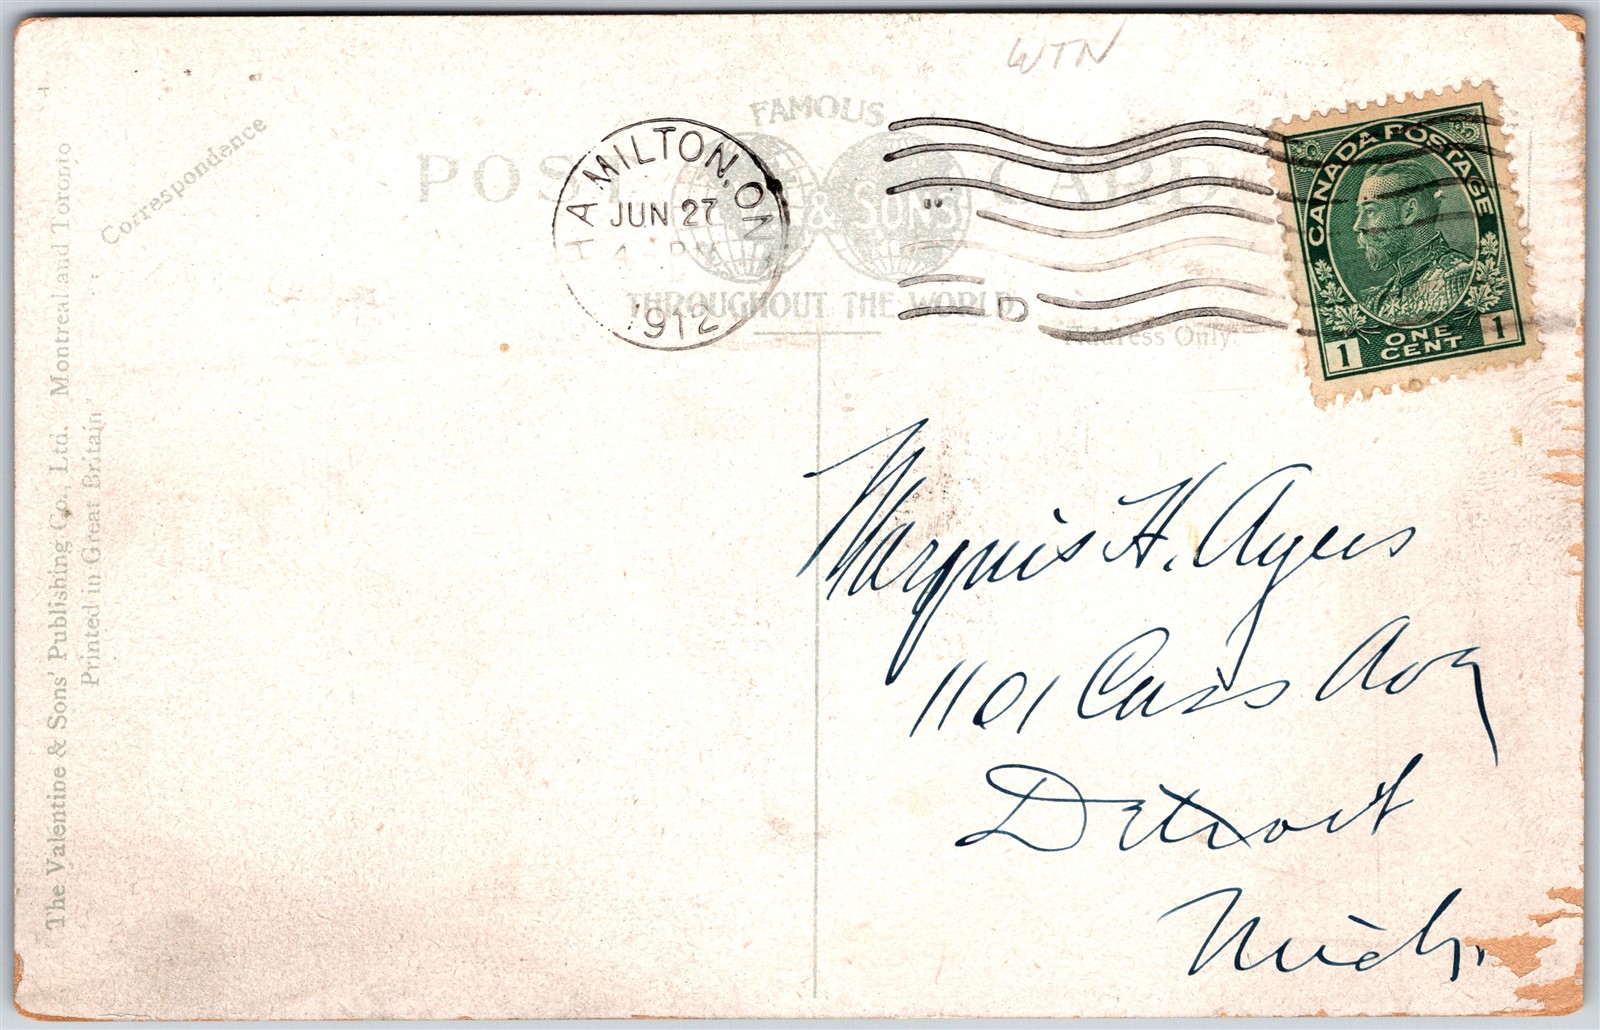 WTN
FAMOUS
POST CARD
& SONS
THROUGHOUT THE WORLD
Address Only.
Correspondence
The Valentine & Sons' Publishing Co., Ltd. Montreal and Toronto
Printed in Great Britain"
HAMILTON, ONT
JUN 27
4 - PM
1912
D
CANADA POSTAGE
1 ONE CENT 1
Marquis H. Ayers
1101 Cass Ave
Detroit
Mich.